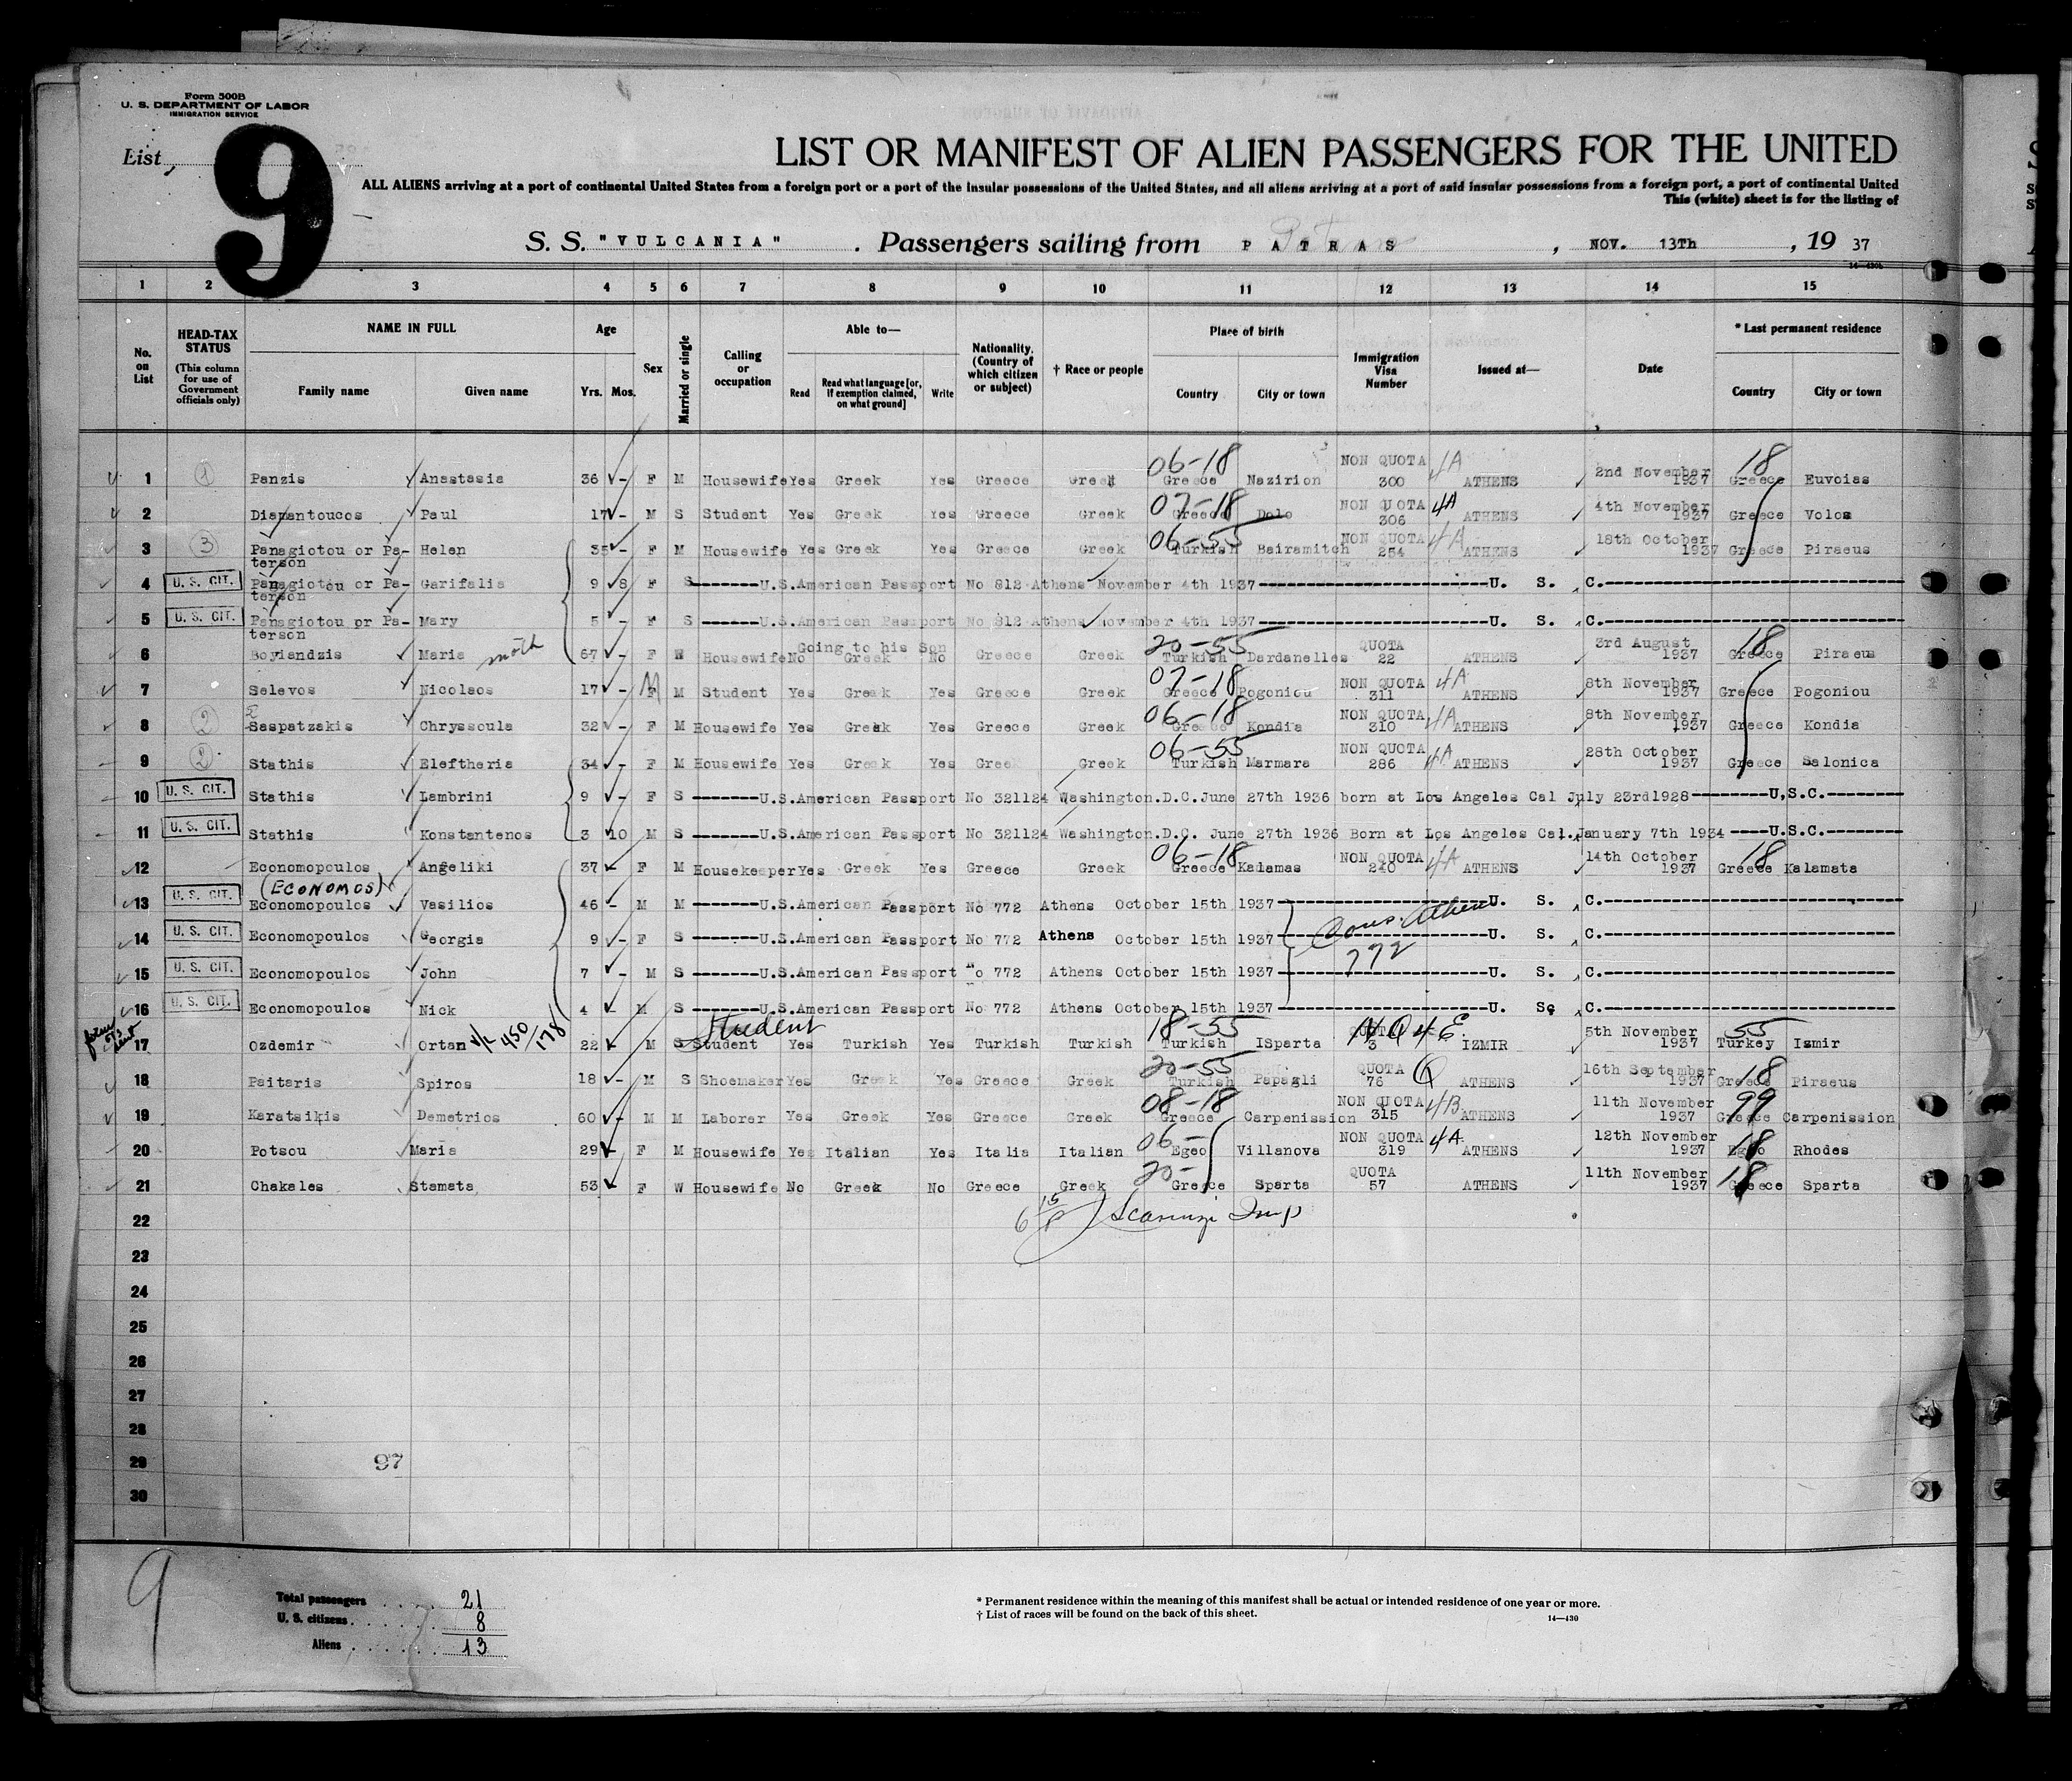 Form 500B
U. S. DEPARTMENT OF LABOR
IMMIGRATION SERVICE
List 9
LIST OR MANIFEST OF ALIEN PASSENGERS FOR THE UNITED
ALL ALIENS arriving at a port of continental United States from a foreign port or a port of the insular possessions of the United States, and all aliens arriving at a port of said insular possessions from a foreign port, a port of continental United
This (white) sheet is for the listing of
S. S. "VULCANIA" . Passengers sailing from PATRAS , NOV. 13Th , 19 37
1 2 3 4 5 6 7 8 9 10 11 12 13 14 15
No. on List
HEAD-TAX STATUS (This column for use of Government officials only)
NAME IN FULL Family name Given name
Age Yrs. Mos.
Sex
Married or single
Calling or occupation
Able to— Read Read what language [or, if exemption claimed, on what ground] Write
Nationality. (Country of which citizen or subject)
† Race or people
Place of birth Country City or town
Immigration Visa Number
Issued at—
Date
* Last permanent residence Country City or town
06-18 NON QUOTA 4A 2nd November 18
1 1 Panzis Anastasia 36 - F M Housewife Yes Greek Yes Greece Greek Greece Nazirion 300 ATHENS 1937 Greece Euvoias
07-18 NON QUOTA 4A 4th November
2 Diamantoucos Paul 17 - M S Student Yes Greek Yes Greece Greek Greece Dolo 306 ATHENS 1937 Greece Volos
06-55 NON QUOTA 4A 18th October
3 3 Panagiotou or Pa- Helen 35 - F M Housewife Yes Greek Yes Greece Greek Turkish Bairamitch 254 ATHENS 1937 Greece Piraeus
terson
4 U. S. CIT. Panagiotou or Pa- Garifalia 9 8 F S -------U.S.American Passport No 812 Athens November 4th 1937-----------U. S. C.-----------
terson
5 U. S. CIT. Panagiotou or Pa- Mary 5 - F S -------U.S.American Passport No 812 Athens November 4th 1937-----------U. S. C.-----------
terson
moth Going to his Son 20-55 QUOTA 3rd August 18
6 Boyiandzis Maria 67 - F W Housewife No Greek No Greece Greek Turkish Dardanelles 22 ATHENS 1937 Greece Piraeus
M 07-18 NON QUOTA 4A 8th November
7 Selevos Nicolaos 17 - F M Student Yes Greek Yes Greece Greek Greece Pogoniou 311 ATHENS 1937 Greece Pogoniou
06-18 NON QUOTA 4A 8th November
8 2 Saspatzakis Chryssoula 32 - F M Housewife Yes Greek Yes Greece Greek Greece Kondia 310 ATHENS 1937 Greece Kondia
06-55 NON QUOTA 4A 28th October
9 2 Stathis Eleftheria 34 - F M Housewife Yes Greek Yes Greek Greek Turkish Marmara 286 ATHENS 1937 Greece Salonica
10 U. S. CIT. Stathis Lambrini 9 - F S -------U.S.American Passport No 321124 Washington.D.C.June 27th 1936 born at Los Angeles Cal July 23rd1928---------U,S.C.---------
11 U. S. CIT. Stathis Konstantenos 3 10 M S -------U.S.American Passport No 321124 Washington.D.C. June 27th 1936 Born at Los Angeles Cal.January 7th 1934 ----U.S.C.---------
06-18 NON QUOTA 4A 14th October 18
12 Economopoulos Angeliki 37 F M Housekeeper Yes Greek Yes Greece Greek Greece Kalamas 240 ATHENS 1937 Greece Kalamata
(ECONOMOS)
13 U. S. CIT. Economopoulos Vasilios 46 - M M -------U.S.American Passport No 772 Athens October 15th 1937-----------U. S. C.-----------
Cons. Athens
14 U. S. CIT. Economopoulos Georgia 9 - F S -------U.S.American Passport No 772 Athens October 15th 1937-----------U. S. C.-----------
772
15 U. S. CIT. Economopoulos John 7 - M S -------U.S.American Passport No 772 Athens October 15th 1937-----------U. S. C.-----------
16 U. S. CIT. Economopoulos Nick 4 M S -------U.S.American Passport No 772 Athens October 15th 1937-----------U. S. C.-----------
450/178 Student 18-55 QUOTA NQ 4E 5th November 55
17 Ozdemir Ortan 22 M S Student Yes Turkish Yes Turkish Turkish Turkish ISparta 3 IZMIR 1937 Turkey Izmir
20-55 QUOTA Q 16th September 18
18 Paitaris Spiros 18 - M S Shoemaker Yes Greek Yes Greece Greek Turkish Papagli 76 ATHENS 1937 Greece Piraeus
08-18 NON QUOTA 4B 11th November 99
19 Karatsikis Demetrios 60 - M M Laborer Yes Greek Yes Greece Greek Greece Carpenission 315 ATHENS 1937 Greece Carpenission
06- NON QUOTA 4A 12th November 18
20 Potsou Maria 29 - F M Housewife Yes Italian Yes Italia Italian Egeo Villanova 319 ATHENS 1937 Egeo Rhodes
20- QUOTA 11th November 18
21 Chakales Stamata 53 F W Housewife No Greek No Greece Greek Greece Sparta 57 ATHENS 1937 Greece Sparta
22
23
24
25
26
27
28
29 97
30
9
Total passengers 21
U. S. citizens 8
Aliens 13
* Permanent residence within the meaning of this manifest shall be actual or intended residence of one year or more.
† List of races will be found on the back of this sheet. 14—430